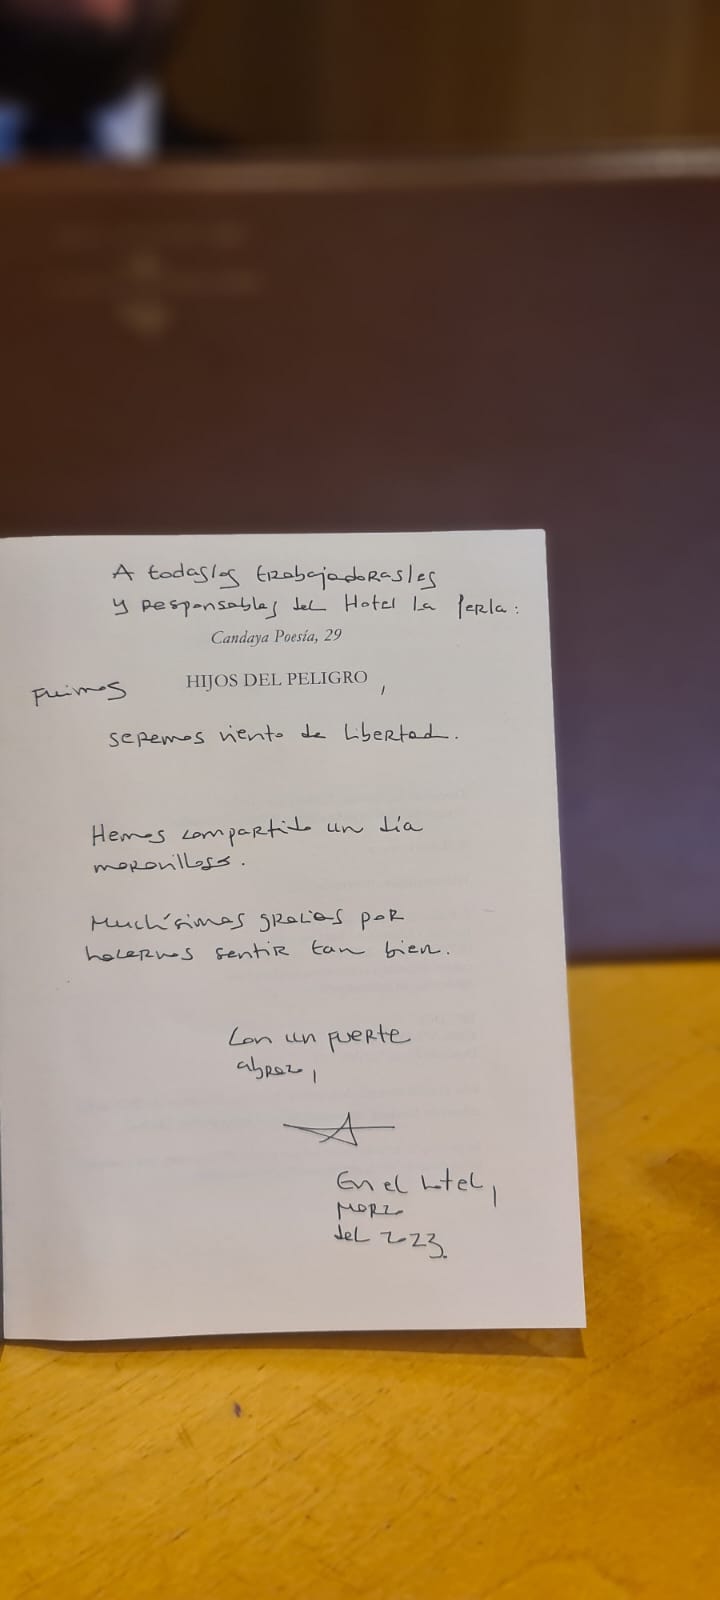 A todas/os trabajadoras/es
y responsables del Hotel La Perla:
Candaya Poesía, 29
Fuimos HIJOS DEL PELIGRO,
seremos viento de libertad.
Hemos compartido un día
maravilloso.
Muchísimas gracias por
hacernos sentir tan bien.
Con un fuerte
abrazo,
En el hotel,
marzo
del 2023.